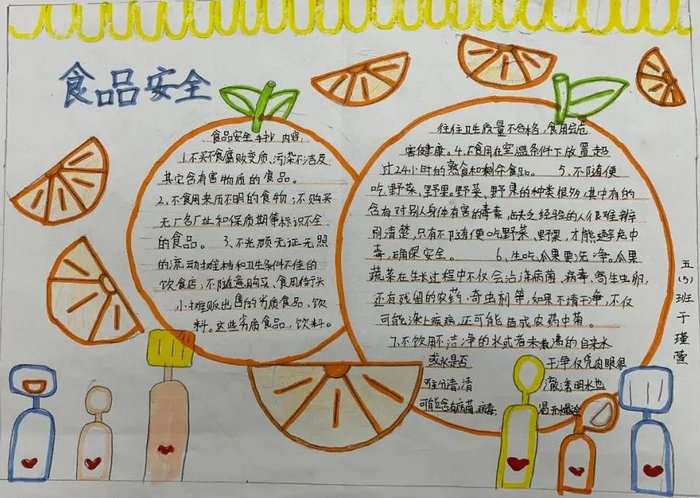 食品安全
食品安全手抄 内容
1.不买不食腐败变质、污染不洁及
其它含有害物质的食品。
2、不食用来历不明的食物；不购买
无厂名厂址和保质期等标识不全
的食品。 3、不光顾无证无照
的流动摊档和卫生条件不佳的
饮食店；不随意购买、食用街头
小摊贩出售的劣质食品、饮
料。这些劣质食品、饮料。
往往卫生质量不合格，食用会危
害健康。4、不食用在室温条件下放置超
过24小时的熟食和剩余食品。 5、不随便
吃野菜、野果。野菜、野果的种类很多，其中有的
含有对人身体有害的毒素，缺乏经验的人很难辨
别清楚，只有不随便吃野菜、野果，才能避免中
毒，确保安全。 6、生吃瓜果要洗净。瓜果
蔬菜在生长过程中不仅会沾染病菌、病毒、寄生虫卵，
还有残留的农药、杀虫剂等，如果不清洗干净，不仅
可能染上疾病，还可能造成农药中毒。
7、不饮用不洁净的水或者未煮沸的自来水
或水是否 干净，仅凭肉眼很
可能含有病菌、病毒
五(5)班于瑾萱